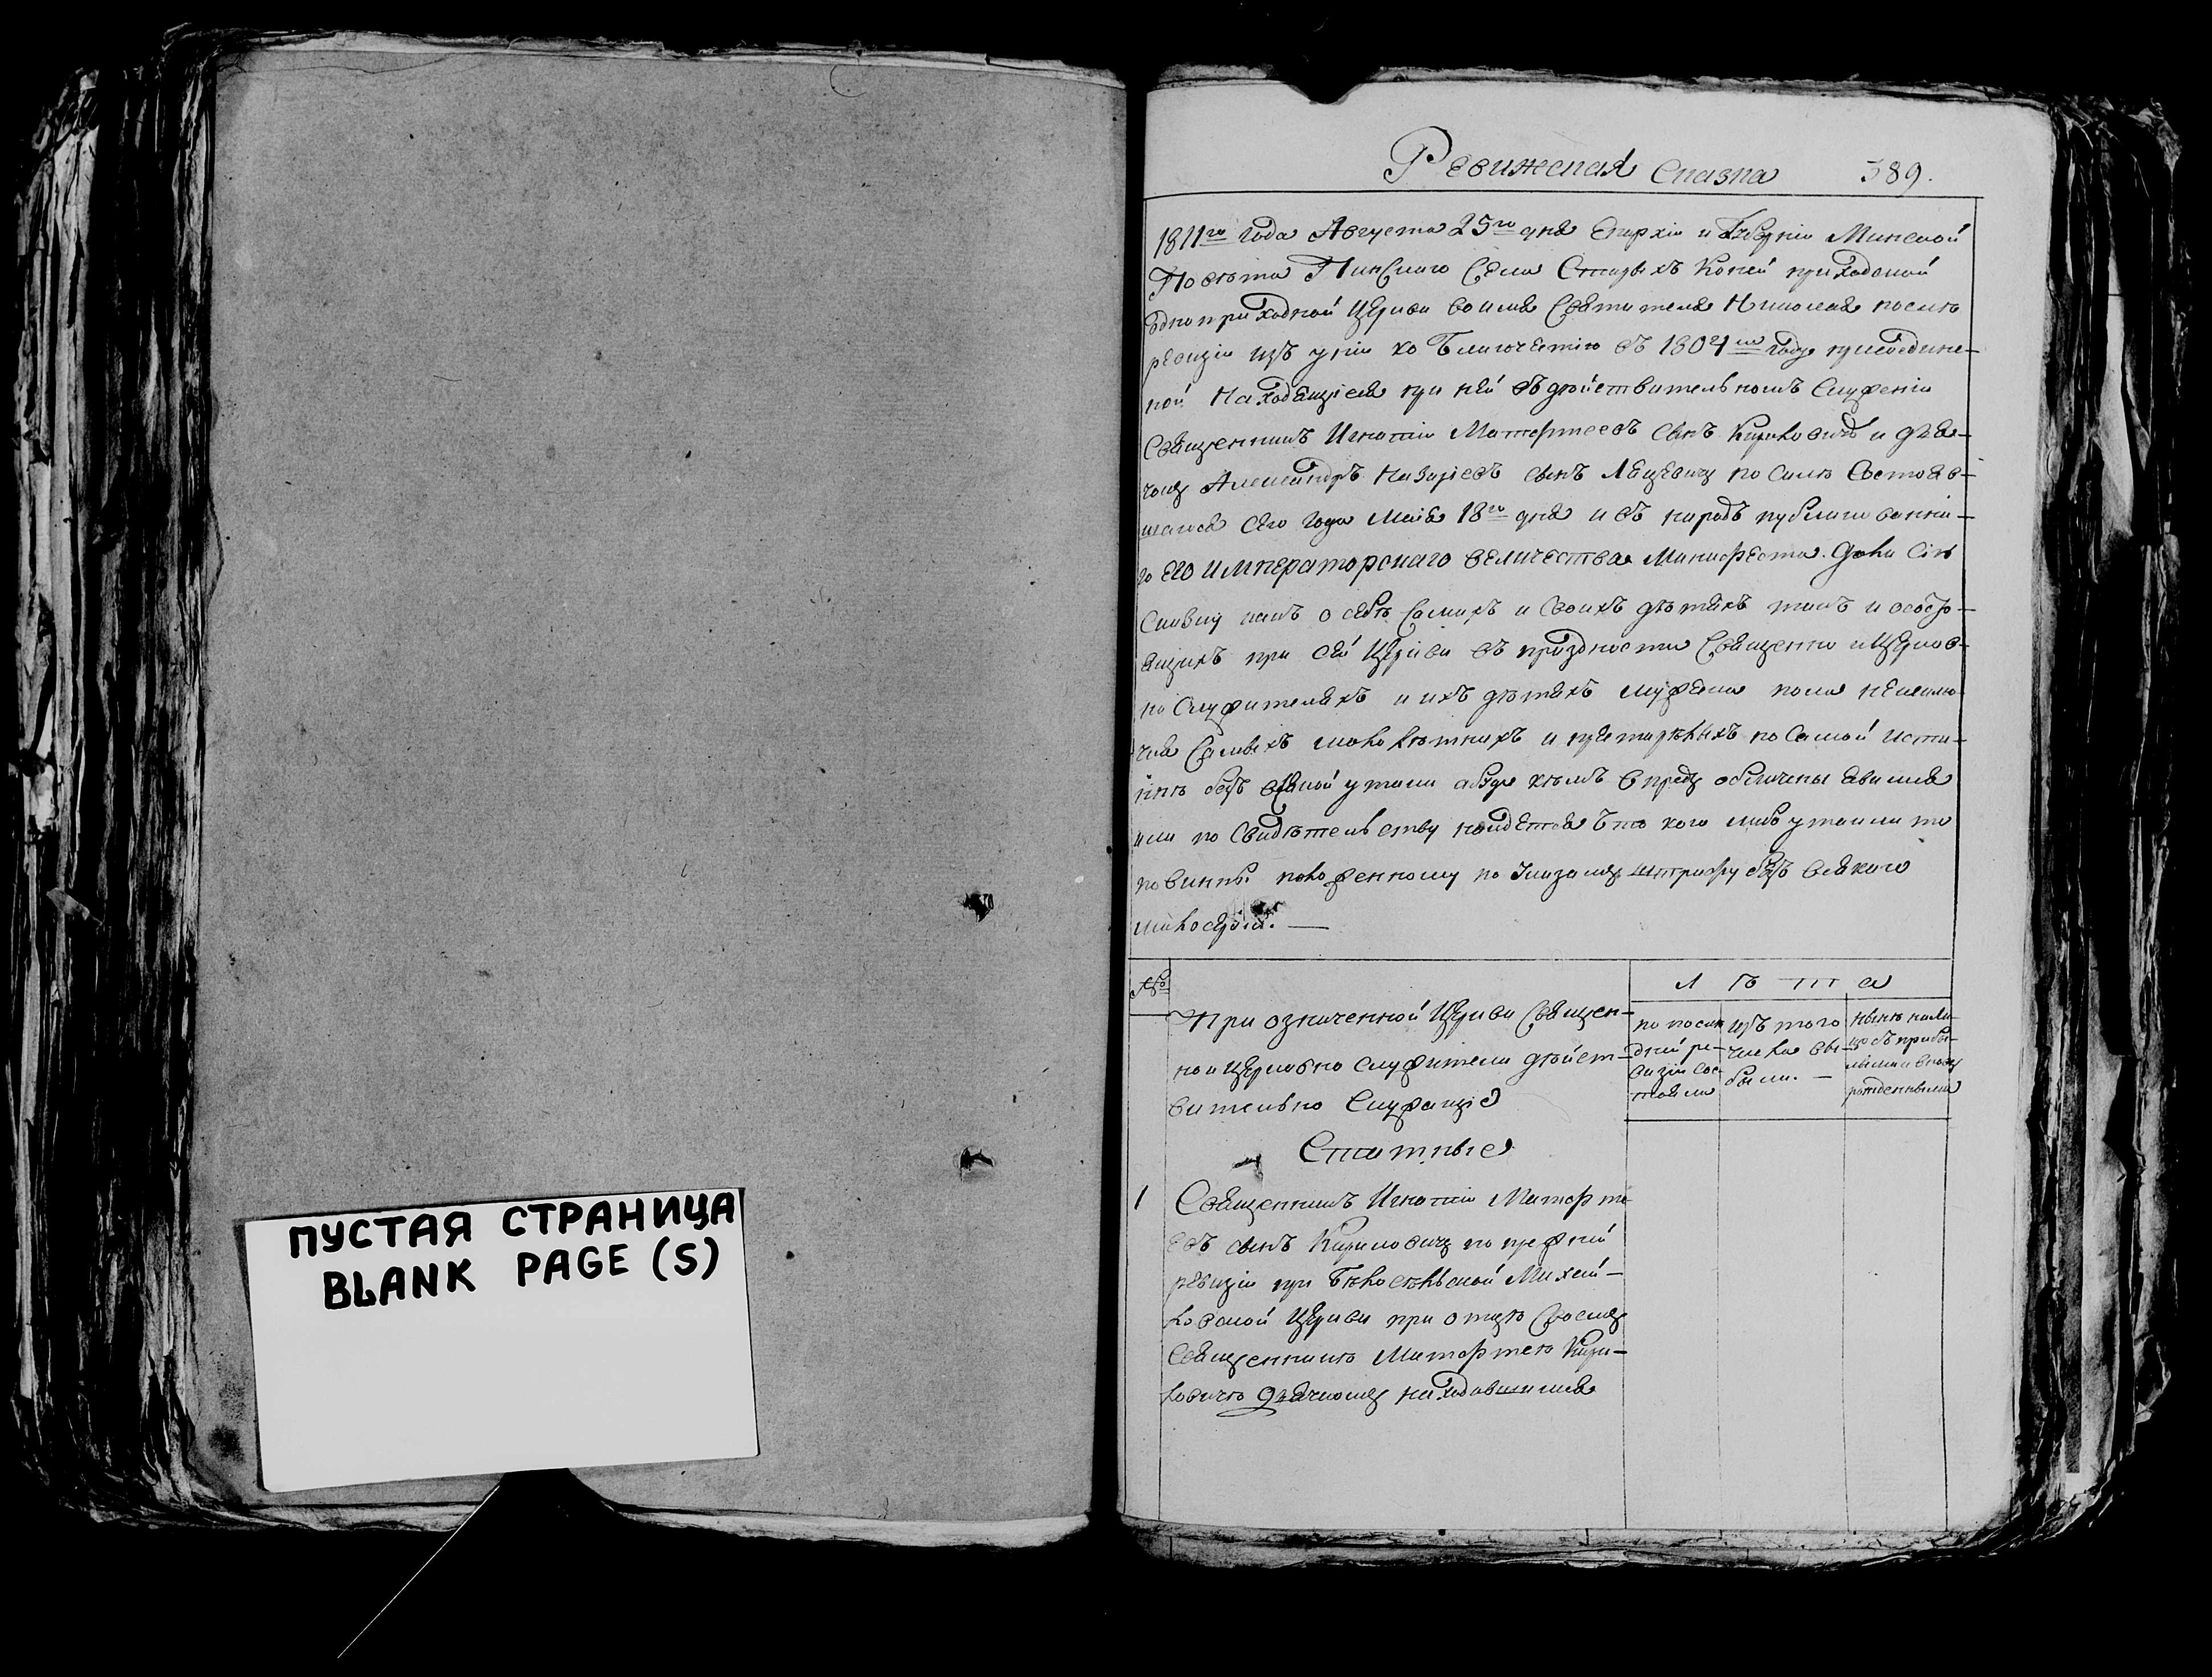 ПУСТАЯ СТРАНИЦА
BLANK PAGE (S)
Ревижская Сказка 389.
1811го года Августа 25го дня Епархіи и Губерніи Минской
Повѣта Пинскаго Села Старыхъ Коней приходской
одноприходной Церкви во имя Святителя Николая послѣ
ревизіи изъ уніи ко Благочестію въ 1804м году присоедине-
ной Находящіеся при ней въ дѣйствительномъ Служеніи
Священникъ Игнатій Матфтеевъ сынъ Кириловичъ и дья-
чокъ Александръ Назаріевъ сынъ по силѣ Состояв-
шагося Сего Года Маія 18го дня и въ народъ публикованна-
го Его Императорскаго величества Манифеста. дали Сію
Сказку какъ о себѣ Самихъ и Своихъ дѣтяхъ такъ и
при сей Церкви въ праздности Священно и Церков-
но Служителяхъ и ихъ дѣтяхъ мужеска пола неисклю-
чая Самыхъ малолѣтнихъ и престарѣлыхъ по Самой Исти-
ннѣ безъ всякой утайки а буде кѣмъ впредь обличены явимся
или по Свидѣтельству найдется Что кого либо утаили то
повинны положенному по Указамъ Штрафу безъ всякаго
милосердія. —
№
При означенной Церкви Священ-
но и Церковно служители дѣйст-
вительно Служащіе
Лѣта
по послѣ
дней ре-
визіи сос-
тояли
изъ того
числа вы-
были. —
нынѣ нали
цо съ прибы-
лыми и вновь
рожденными
Статные
1 Священникъ Игнатій Матфте
евъ сынъ Кириловичъ по прежней
ревизіи при Бѣлосѣльской Михай-
ловской Церкви при отцѣ Своемъ
Священникѣ Матфтеѣ Кири-
ловичѣ дьячкомъ находившийся